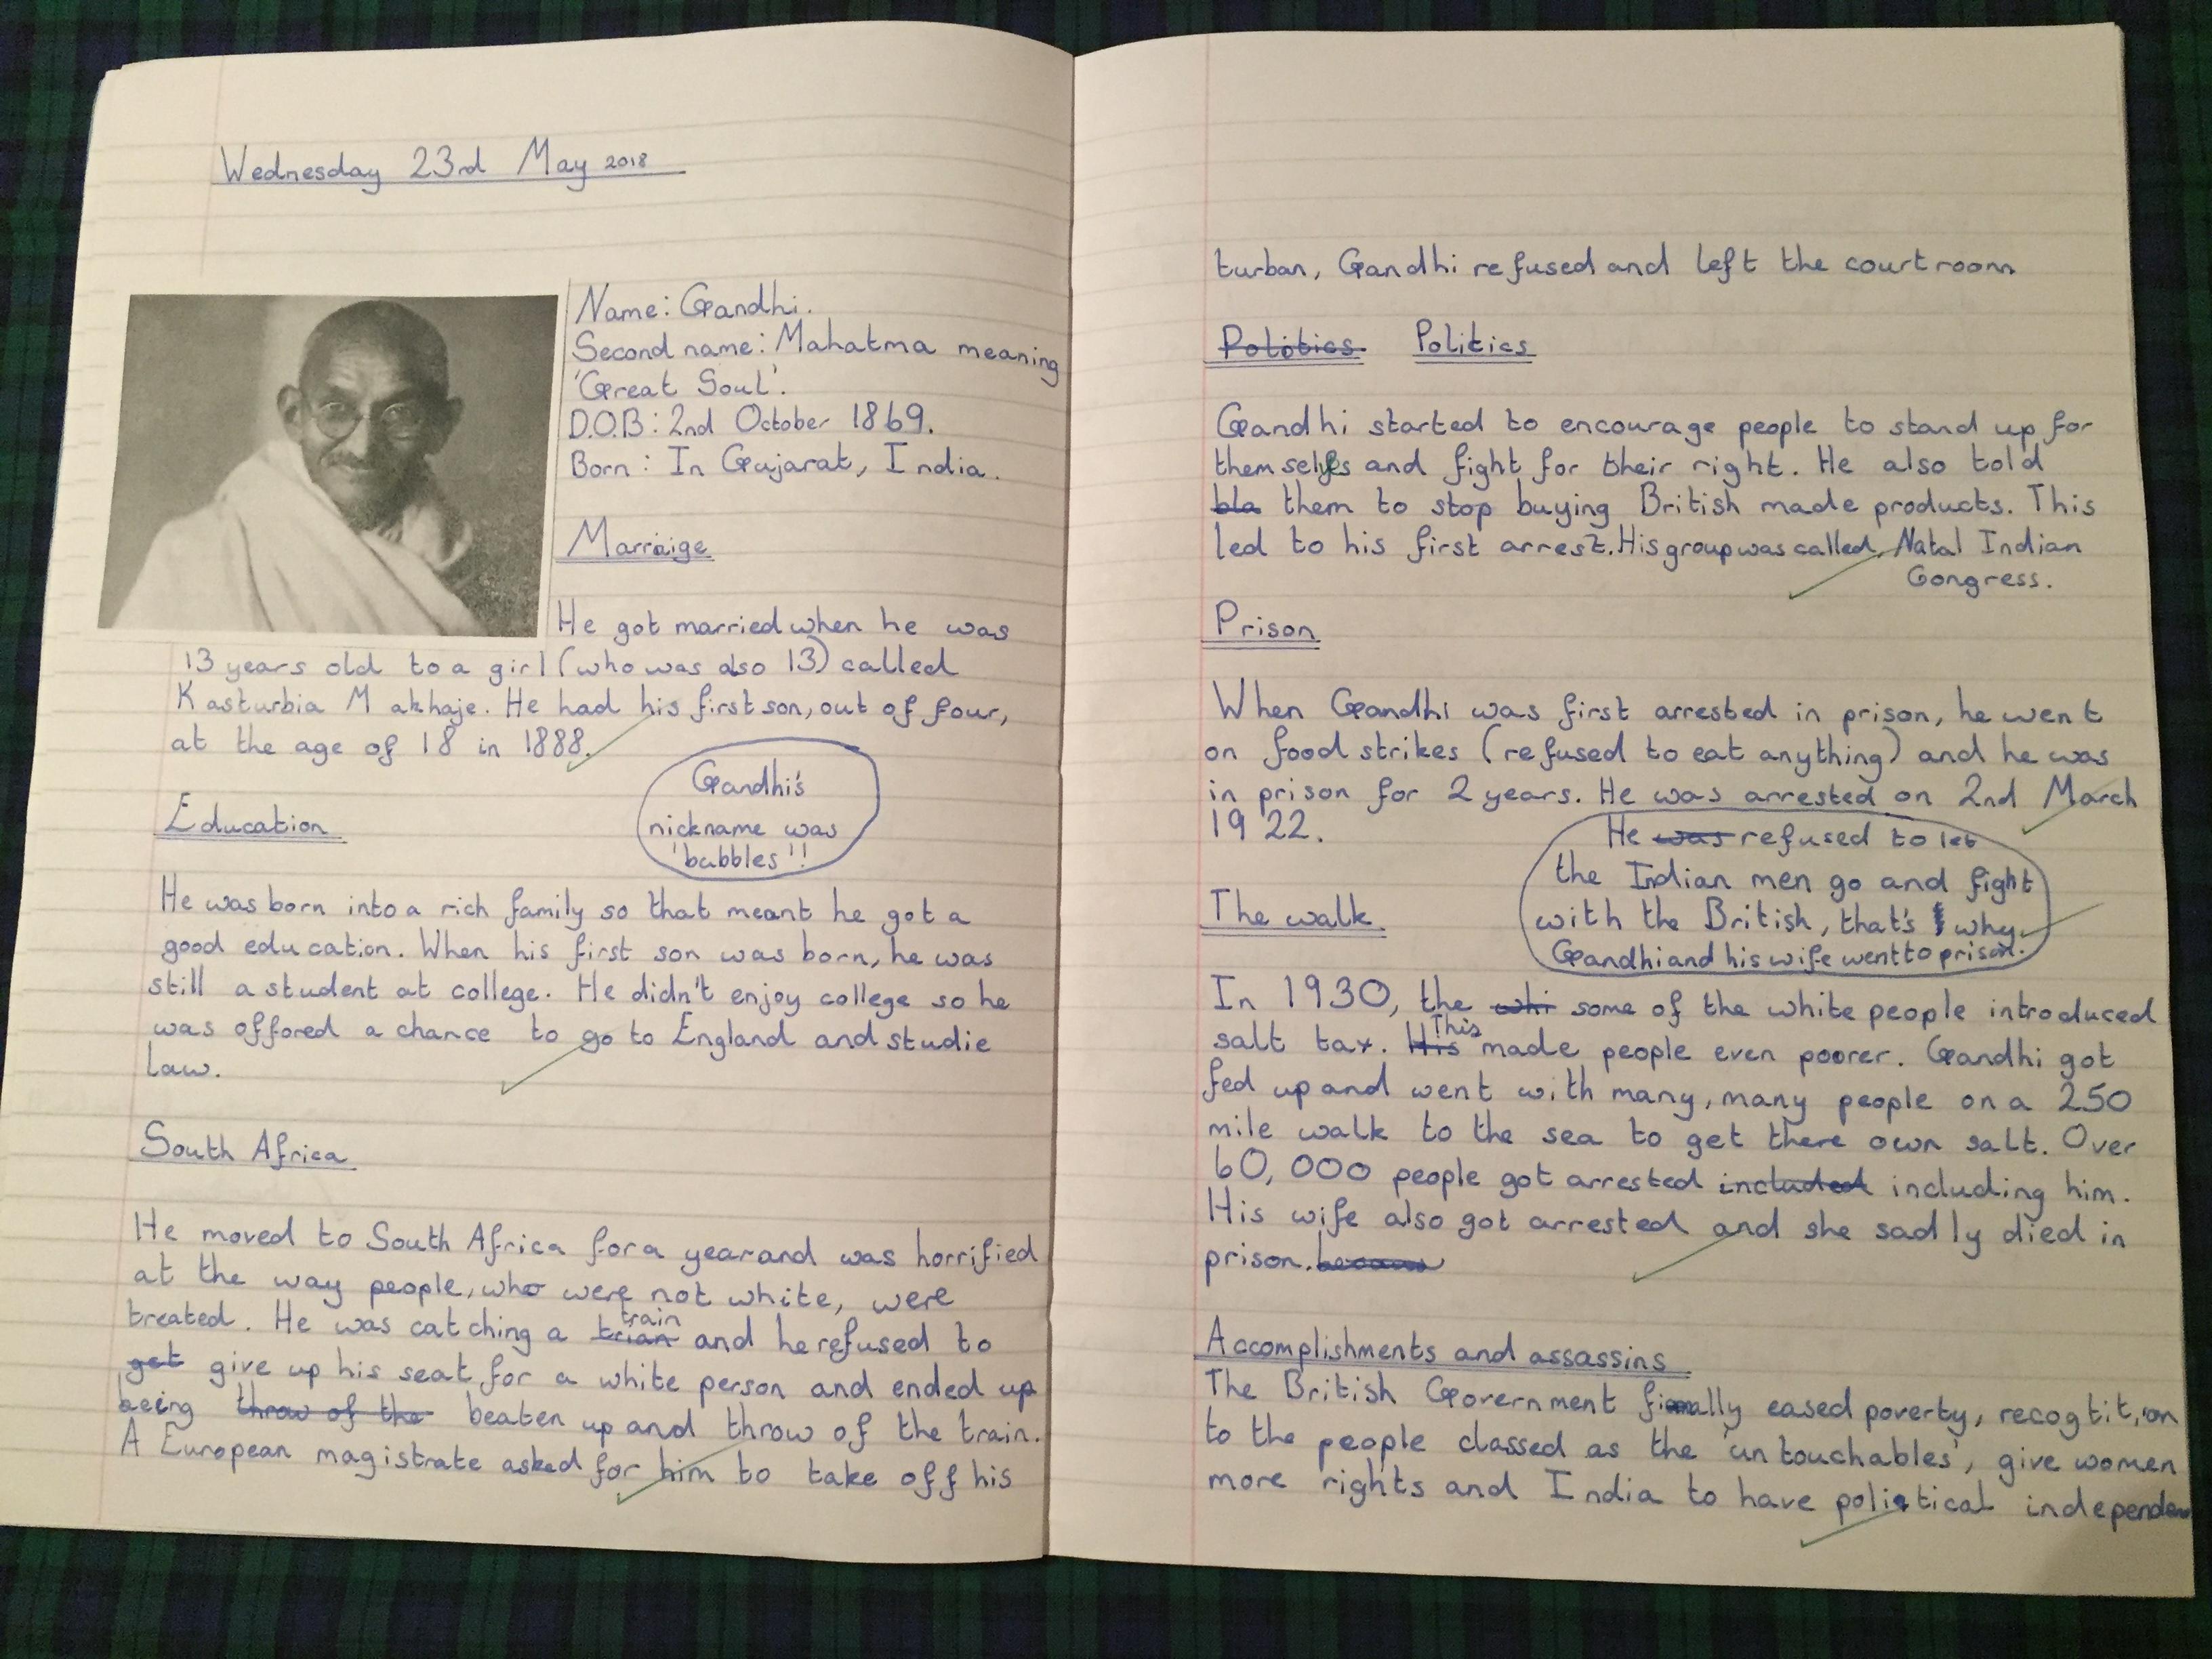 Wednesday 23rd May 2018
Name: Gandhi.
Second name: Mahatma meaning
'Great Soul'.
D.O.B: 2nd October 1869.
Born: In Gujarat, India.
Marraige
He got married when he was
13 years old to a girl (who was also 13) called
Kasturbia Makhaje. He had his first son, out of four,
at the age of 18 in 1888.
Gandhi's
nickname was
'babbles'!
Education
He was born into a rich family so that meant he got a
good education. When his first son was born, he was
still a student at college. He didn't enjoy college so he
was offored a chance to go to England and studie
law.
South Africa
He moved to South Africa for a year and was horrified
at the way people, who were not white, were
treated. He was catching a trian train and he refused to
get give up his seat for a white person and ended up
being throw of the beaten up and throw of the train.
A European magistrate asked for him to take off his
turban, Gandhi refused and left the courtroom
Polotics Politics
Gandhi started to encourage people to stand up for
themselves and fight for their right. He also told
bla them to stop buying British made products. This
led to his first arrest. His group was called, Natal Indian
Congress.
Prison
When Gandhi was first arrested in prison, he went
on food strikes (refused to eat anything) and he was
in prison for 2 years. He was arrested on 2nd March
1922.
He was refused to let
the Indian men go and fight
with the British, that's why
Gandhi and his wife went to prison.
The walk
In 1930, the whi some of the white people introduced
salt tax. His This made people even poorer. Gandhi got
fed up and went with many, many people on a 250
mile walk to the sea to get there own salt. Over
60,000 people got arrested included including him.
His wife also got arrested and she sadly died in
prison.
Accomplishments and assassins
The British Government finally eased poverty, recogtition
to the people classed as the 'untouchables', give women
more rights and India to have poliotical independen